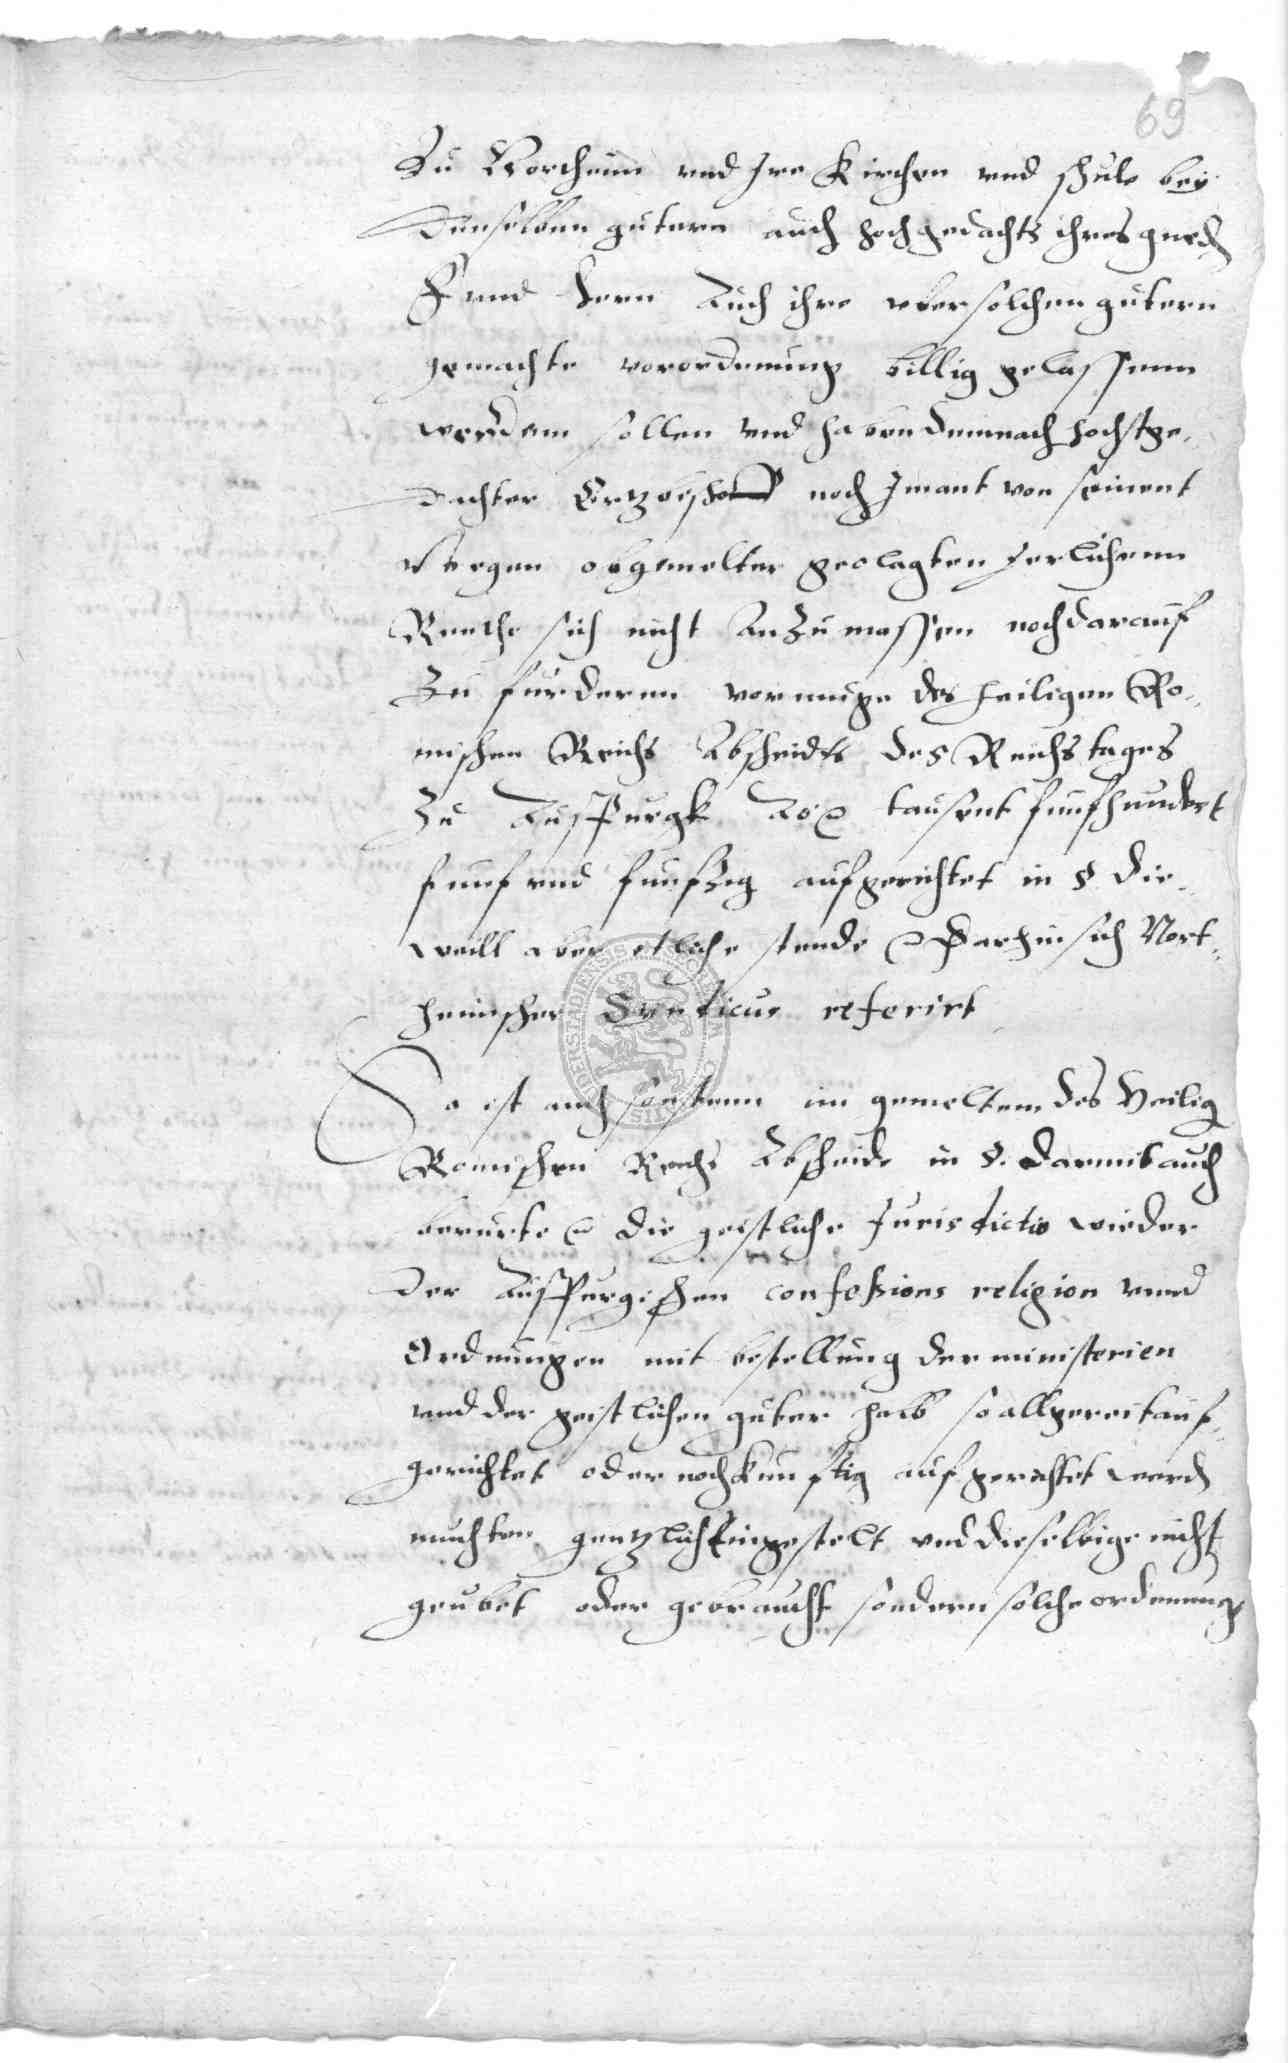 69
Zu Northeim vnd Jre Kirchen vnd schule bey
denselben gutern auch hochgedachts ihres gned
F vnd hern Auch ihre vber solchen gutern
gemachte vorordenung billig gelassenn
werdenn sollen vnd haben demnach hochstge-
dachter Ertzbischoff noch Jmant von seinent
wegen obgemelter geclagten Jerlichenn
Renthe sich nicht anzumassen noch darauf
Zu furderenn vormuge des heiligen Ro-
mischen Reichs Abscheidts des Reichstages
Zu Auspurgk Ao tausent funfhundert
funf vnd funfzig aufgerichtet in § die-
weill aber etliche stende Darhin sich Nort-
heimscher Syndicus referirt
So ist auch sonstenn im gemeltem des Heilig
Romischen Reichs Abscheide in §. Darmit auch
berurte die geistliche Jurisdictio wieder
der Auspurgischen confessions religion vnnd
Ordnungen mit bestellung der ministerien
vnd der geistlichen guter halb so allgereit auf-
gerichtet oder noch Kunftig aufgerichtet werd
muchten gentzlich eingestelt vnd dieselbige nicht
geubet oder gebraucht sondern solche ordenung